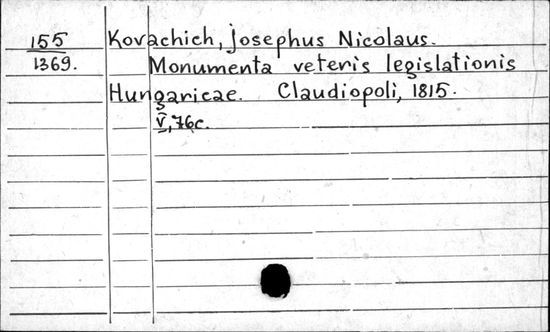 155 Kovachich, Josephus Nicolaus.
1369. Monumenta veteris legislationis
Hungaricae. Claudiopoli, 1815.
V, 76c.